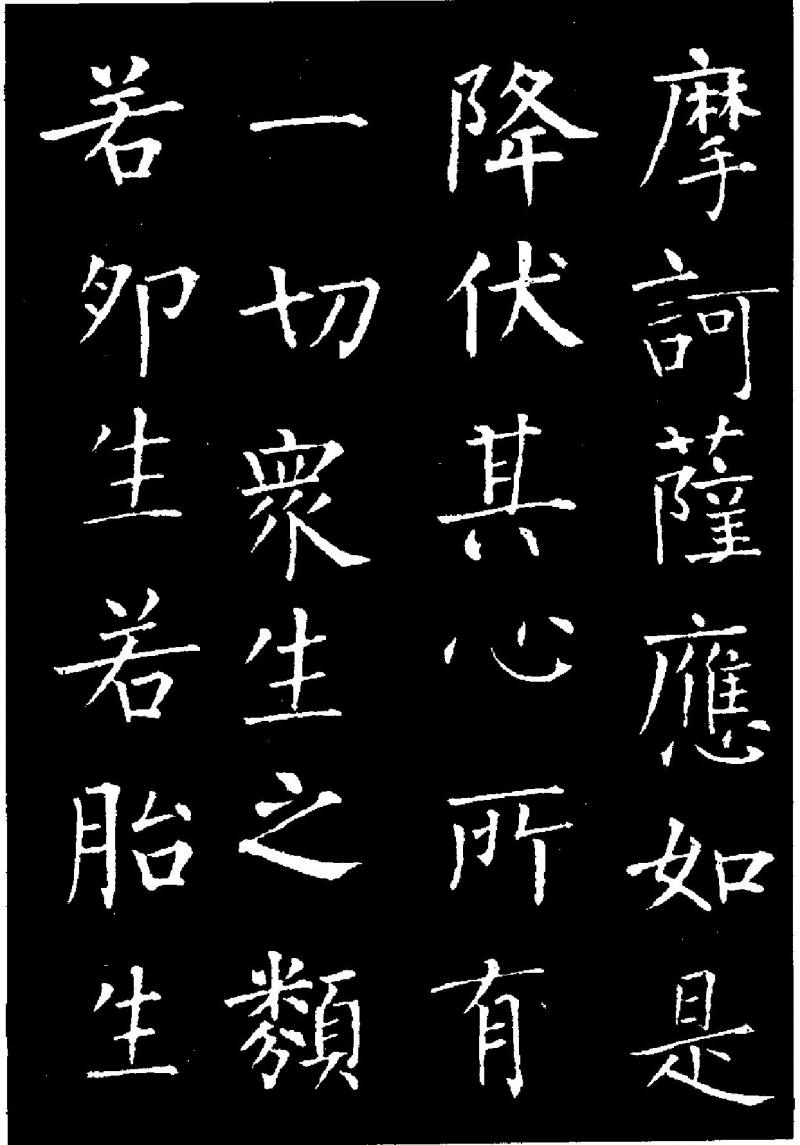 摩訶薩應如是
降伏其心所有
一切衆生之類
若卵生若胎生